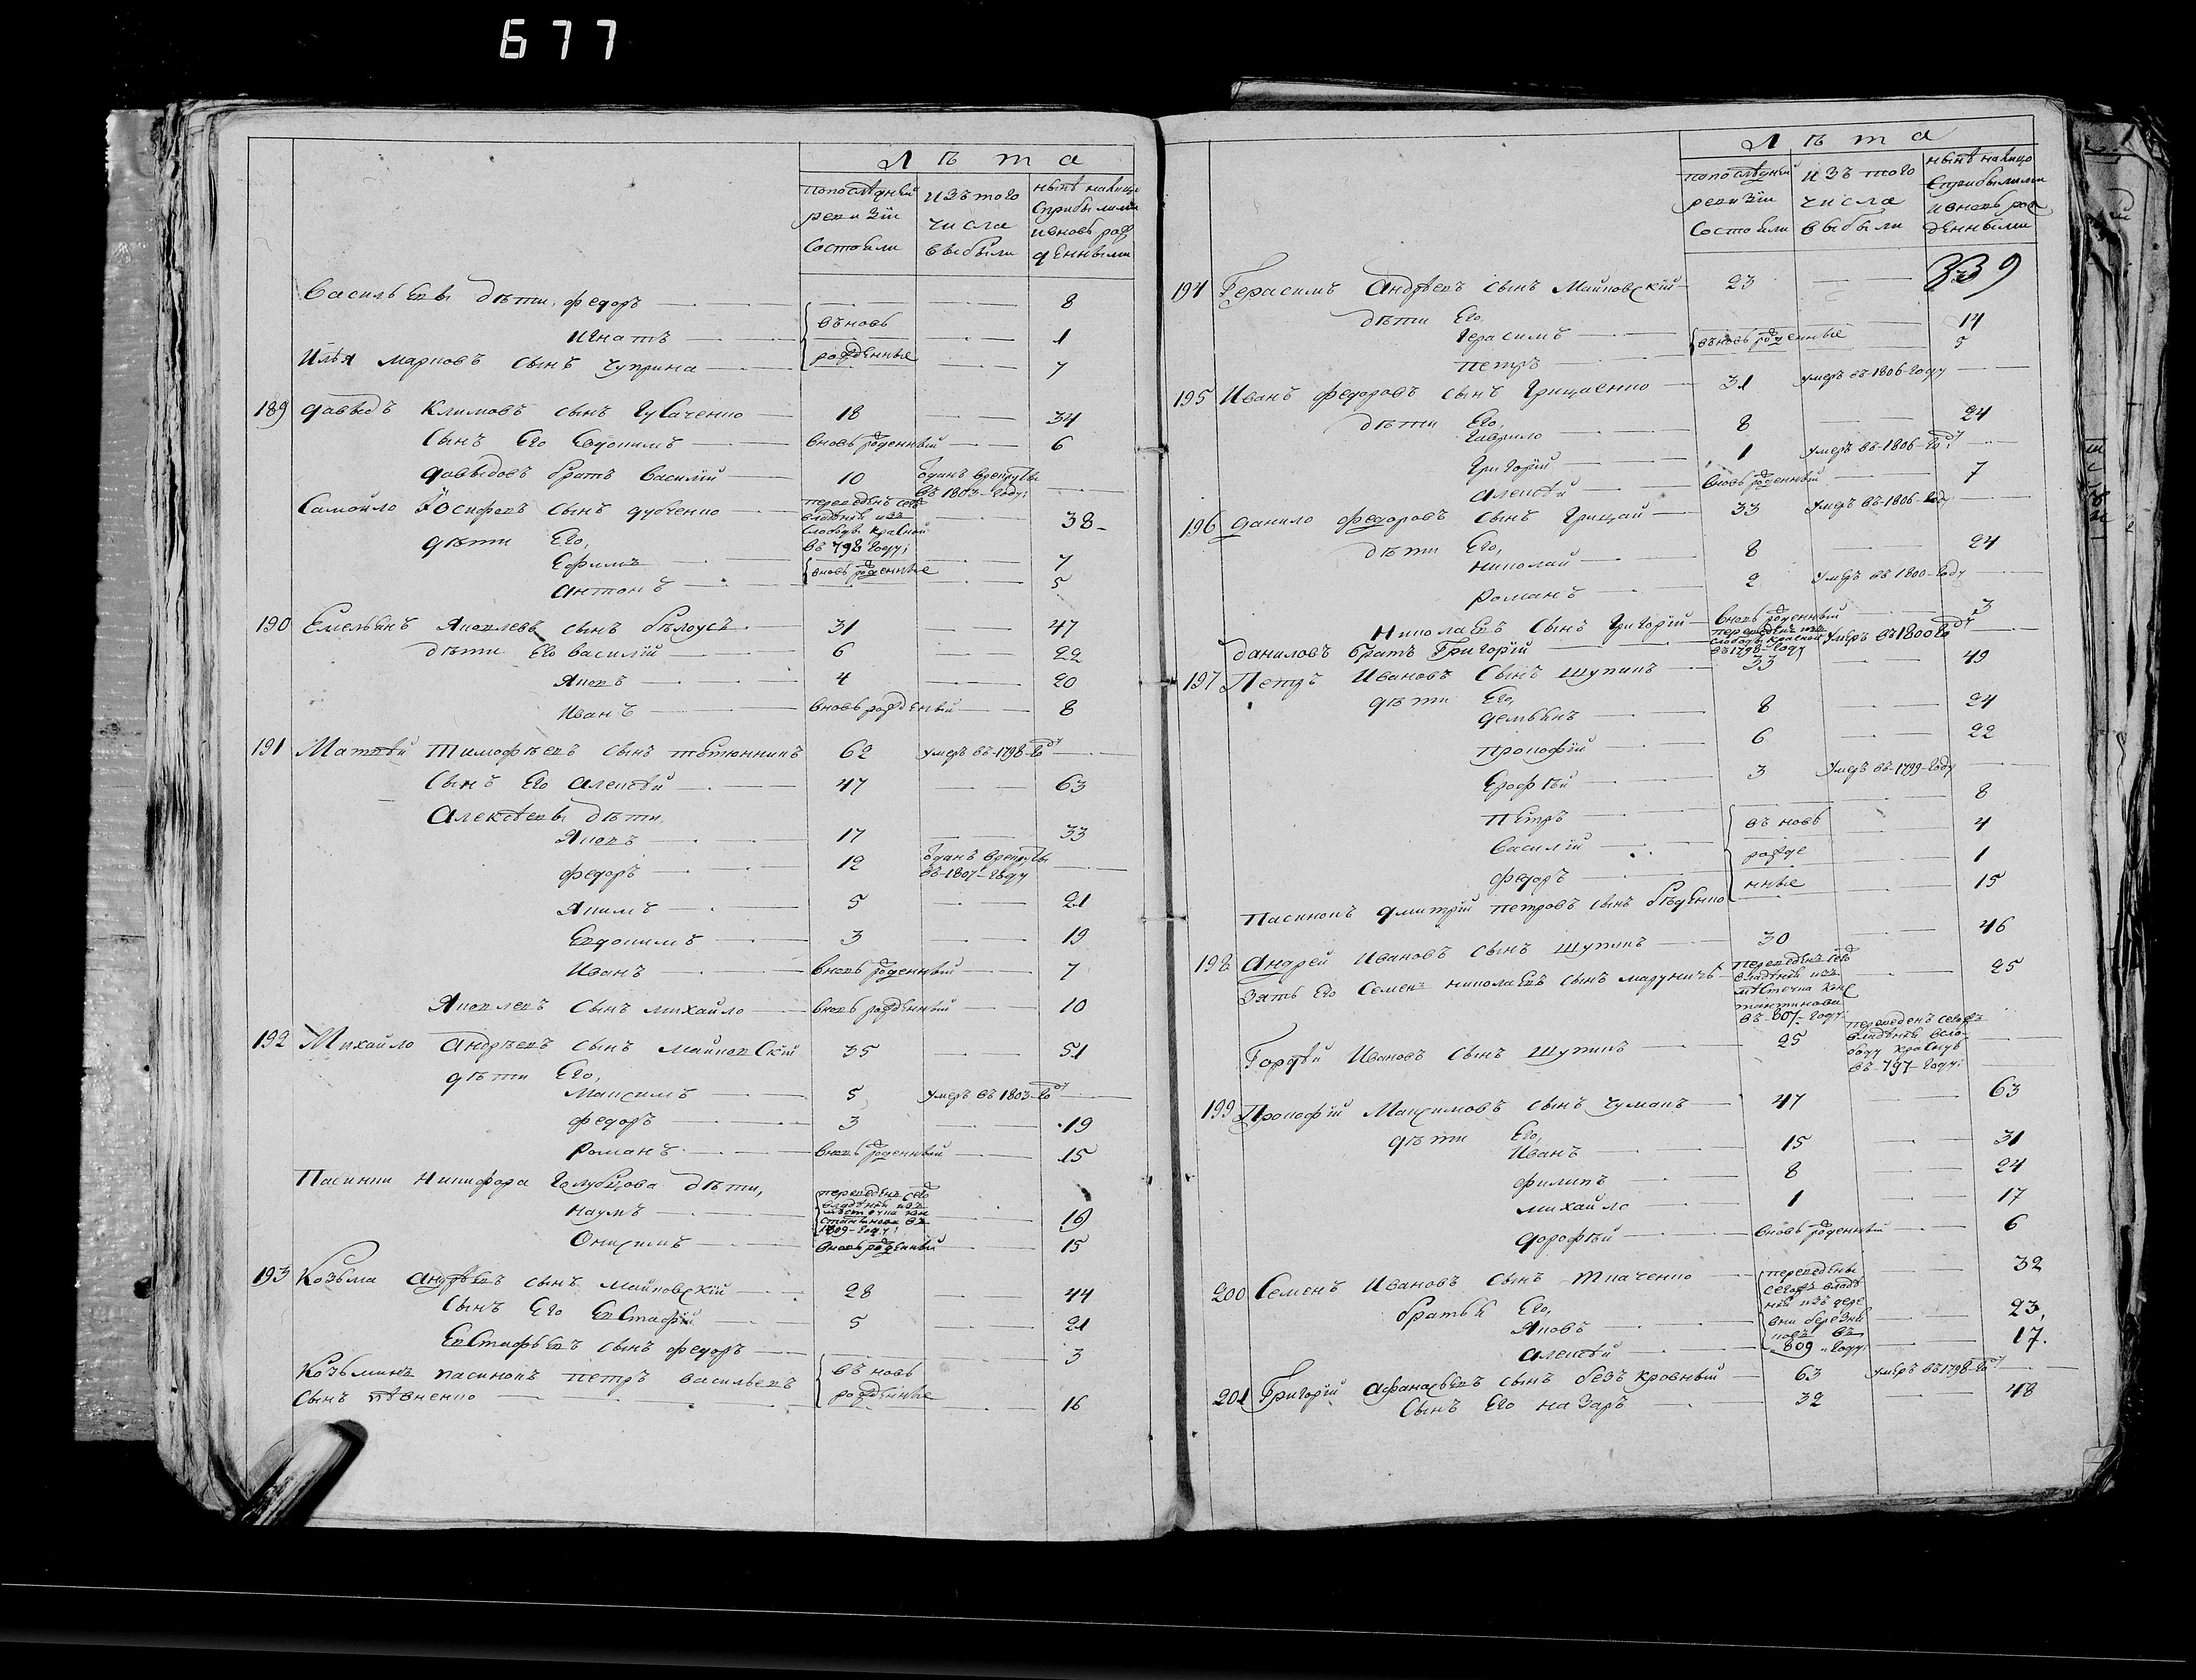 677
Лѣта
попослѣдней ревизіи состояли
изъ того числа выбыли
нынѣ налицо сприбылыми ивновь рожденными
Васильевы дѣти, федоръ 8
Игнатъ вновь рожденные 1
Илья марковъ сынъ чуприна 7
189 давыдъ климовъ сынъ 18 34
сынъ Его Евдокимъ вновь рожденный 6
давыдовъ братъ василій 10 отданъ врекруты въ 1803 году
Самойло Іосифовъ сынъ дубченко переведенъ изъ слободы красной въ 798 году 38
дѣти Его,
Ефимъ вновь рожденные 7
антонъ 5
190 Емельянъ Яковлевъ сынъ бѣлоусъ 31 47
дѣти Его василій 6 22
Яковъ 4 20
Иванъ вновь рожденный 8
191 Матвѣй тимофѣевъ сынъ 62 умеръ въ 1798 году
сынъ Его алексѣй 47 63
Алексѣевы дѣти,
Яковъ 17 33
федоръ 12 отданъ врекруты въ 1807 году
Якимъ 5 21
Евдокимъ 3 19
Иванъ вновь рожденный 7
Яковлевъ сынъ михайло вновь рожденный 10
192 Михайло андрѣевъ сынъ майковскій 35 51
дѣти Его,
Максимъ 5 умеръ въ 1803 году
федоръ 3 19
романъ вновь рожденный 15
Пасинки никифора голубцова дѣти,
наумъ переведенъ изъ мѣстечка константинова въ 1809 году 19
Онисимъ вновь рожденный 15
193 Козьма андрѣевъ сынъ майковскій 28 44
сынъ Его Евстафій 5 21
Евстафьевъ сынъ федоръ 3
Козьминъ пасинокъ петръ васильевъ въновь
сынъ пѣвненко рожденные 16
Лѣта
попослѣдней ревизіи состояли
изъ того числа выбыли
нынѣ налицо сприбылыми ивновь рожденными
194 Герасимъ Андрѣевъ сынъ Майковскій 23 39
дѣти Его,
герасимъ въновь рожденные 14
петръ 5
195 Иванъ федоровъ сынъ грицаенко 31 умеръ въ 1806 году
дѣти Его,
гаврило 8 24
григорій 1 умеръ въ 1806 году
алексѣй вновь рожденный 7
196 данило федоровъ сынъ грицай 33 умеръ въ 1806 году
дѣти Его,
николай 8 24
романъ 2 умеръ въ 1800 году
николаевъ сынъ григорій вновь рожденный 3
даниловъ братъ григорій переведенъ изъ слободы красной въ 1798 году умеръ въ 1800 году
197 Петръ Ивановъ сынъ щупикъ 33 49
дѣти Его,
демьянъ 8 24
прокофій 6 22
Ерофѣй 3 умеръ въ 1799 году
петръ 8
василій въ новь 4
федоръ рожде 1
Пасинокъ дмитрій петровъ сынъ нные 15
198 Андрей Ивановъ сынъ щупикъ 30 46
Зять Его Семенъ николаевъ сынъ марущичъ переведенъ изъ мѣстечка константинова въ 807 году 25
Гордѣй Ивановъ сынъ щупикъ 25 переведенъ вслободу красную въ 797 году
199 Прокофій Максимовъ сынъ чумакъ 47 63
дѣти Его,
Иванъ 15 31
филипъ 8 24
михайло 1 17
дорофѣй вновь рожденный 6
200 Семенъ Ивановъ сынъ ткаченко переведены 32
братья Его,
Яковъ изъ деревни 23
алексѣй 809 году 17
201 Григорій афанасьевъ сынъ безкровный 63 умеръ въ 1798 году
сынъ Его назаръ 32 48